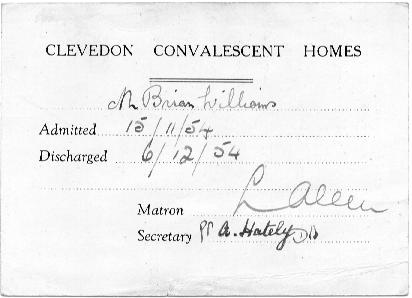 CLEVEDON CONVALESCENT HOMES
Mr Brian Williams
Admitted 15/11/54
Discharged 6/12/54
Matron L Allen
Secretary pp A. Hately